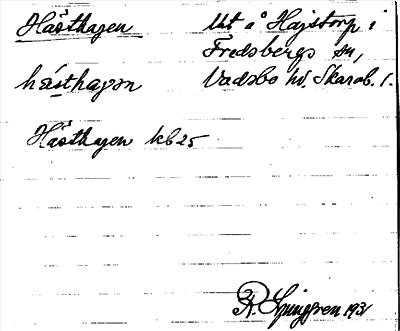 Hästhagen Ut å Hajstorp i
Fredsbergs sn,
hästhagən Vadsbo hd. Skarab. l.
Hästhagen kb25
R. Ljunggren 1931